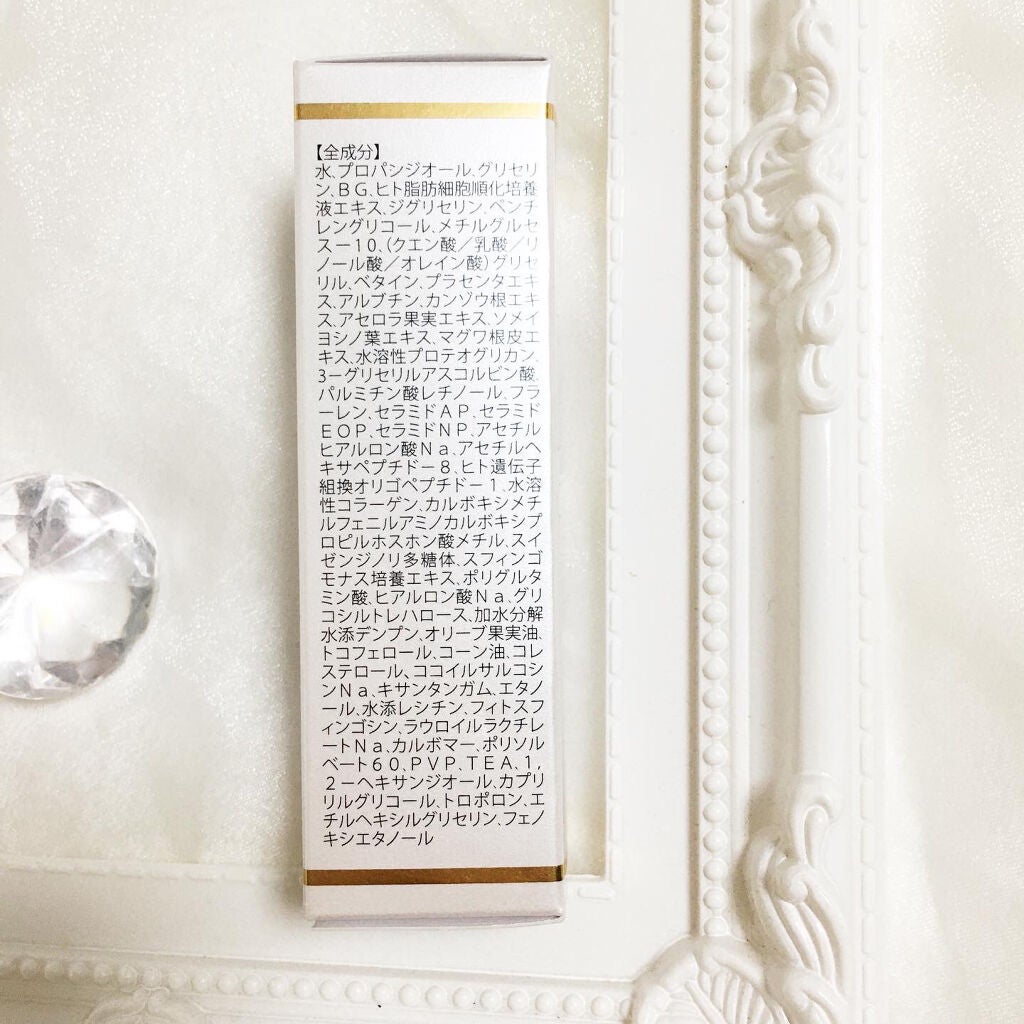 【全成分】
水、プロパンジオール、グリセリ
ン、BG、ヒト脂肪細胞順化培養
液エキス、ジグリセリン、ペンチ
レングリコール、メチルグルセ
スー10、(クエン酸/乳酸/リ
ノール酸/オレイン酸)グリセ
リル、ベタイン、プラセンタエキ
ス、アルブチン、カンゾウ根エキ
ス、アセロラ果実エキス、ソメイ
ヨシノ葉エキス、マグワ根皮エ
キス、水溶性プロテオグリカン、
3ーグリセリルアスコルビン酸、
パルミチン酸レチノール、フラ
ーレン、セラミドAP、セラミド
EOP、セラミドNP、アセチル
ヒアルロン酸Na、アセチルヘ
キサペプチドー8、ヒト遺伝子
組換オリゴペプチドー1、水溶
性コラーゲン、カルボキシメチ
ルフェニルアミノカルボキシプ
ロピルホスホン酸メチル、スイ
ゼンジノリ多糖体、スフィンゴ
モナス培養エキス、ポリグルタ
ミン酸、ヒアルロン酸Na、グリ
コシルトレハロース、加水分解
水添デンプン、オリーブ果実油、
トコフェロール、コーン油、コレ
ステロール、ココイルサルコシ
ンNa、キサンタンガム、エタノ
ール、水添レシチン、フィトスフ
ィンゴシン、ラウロイルラクチレ
ートNa、カルボマー、ポリソル
ベート60、PVP、TEA、1,
2ーヘキサンジオール、カプリ
リルグリコール、トロポロン、エ
チルヘキシルグリセリン、フェノ
キシエタノール